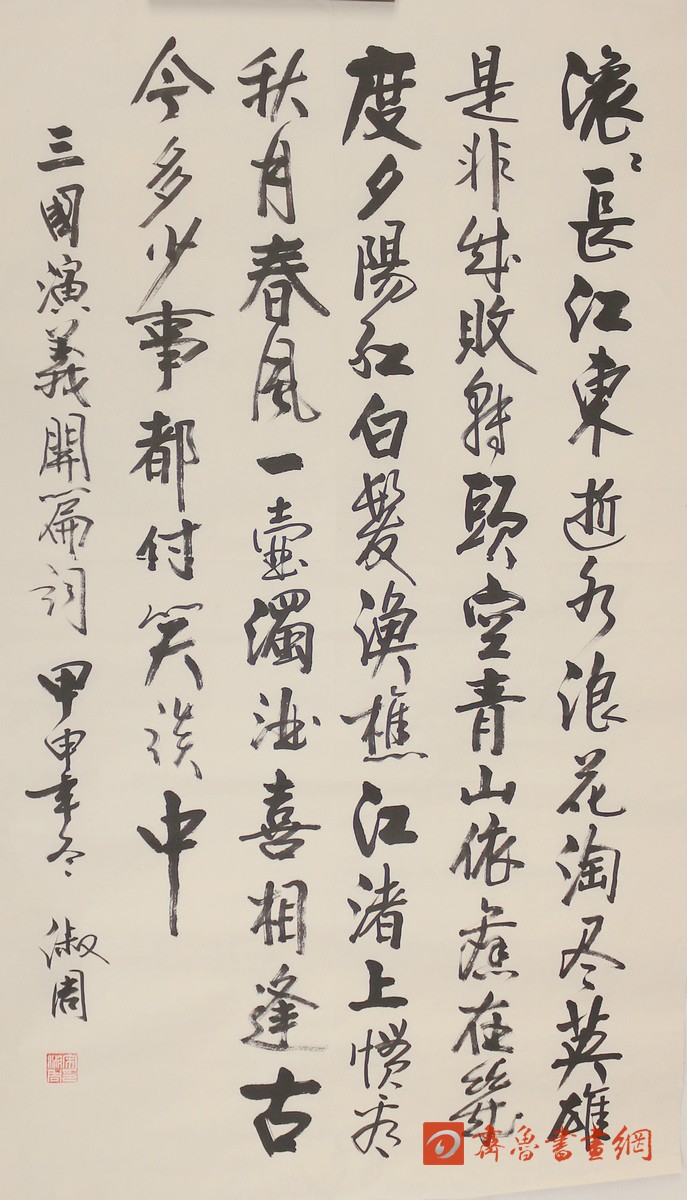 滚〻長江東逝水浪花淘尽英雄
是非成敗轉頭空青山依舊在幾
度夕陽紅白髮漁樵江渚上慣看
秋月春風一壺濁酒喜相逢古
今多少事都付笑談中
三國演義開篇詞 甲申年冬 淑周
齊魯書畫網